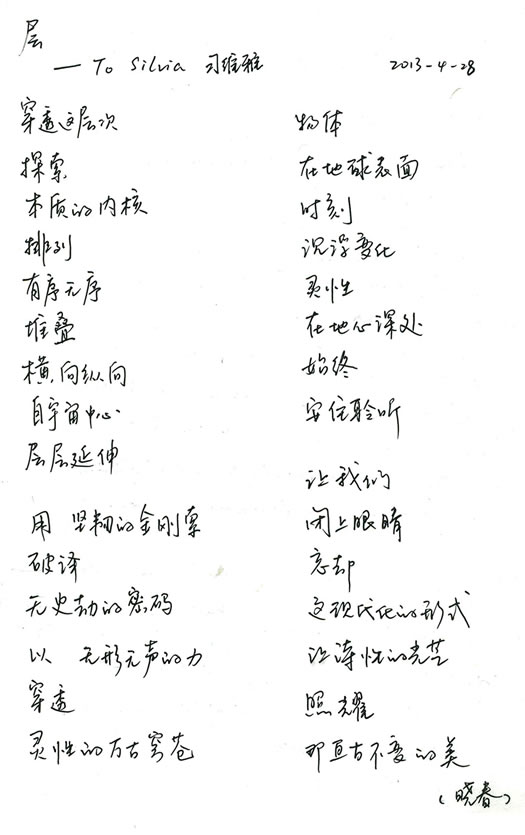 层
— To Silvia 习维雅 2013-4-28
穿透这层次
探索
本质的内核
排列
有序无序
堆叠
横向纵向
自宇宙中心
层层延伸
用 坚韧的金刚索
破译
无史劫的密码
以 无形无声的力
穿透
灵性的万古穹苍
物体
在地球表面
时刻
沉浮变化
灵性
在地心深处
始终
安住聆听
让我们
闭上眼睛
忘却
这现代化的形式
让诗性的光芒
照耀
那亘古不变的美
（晓春）